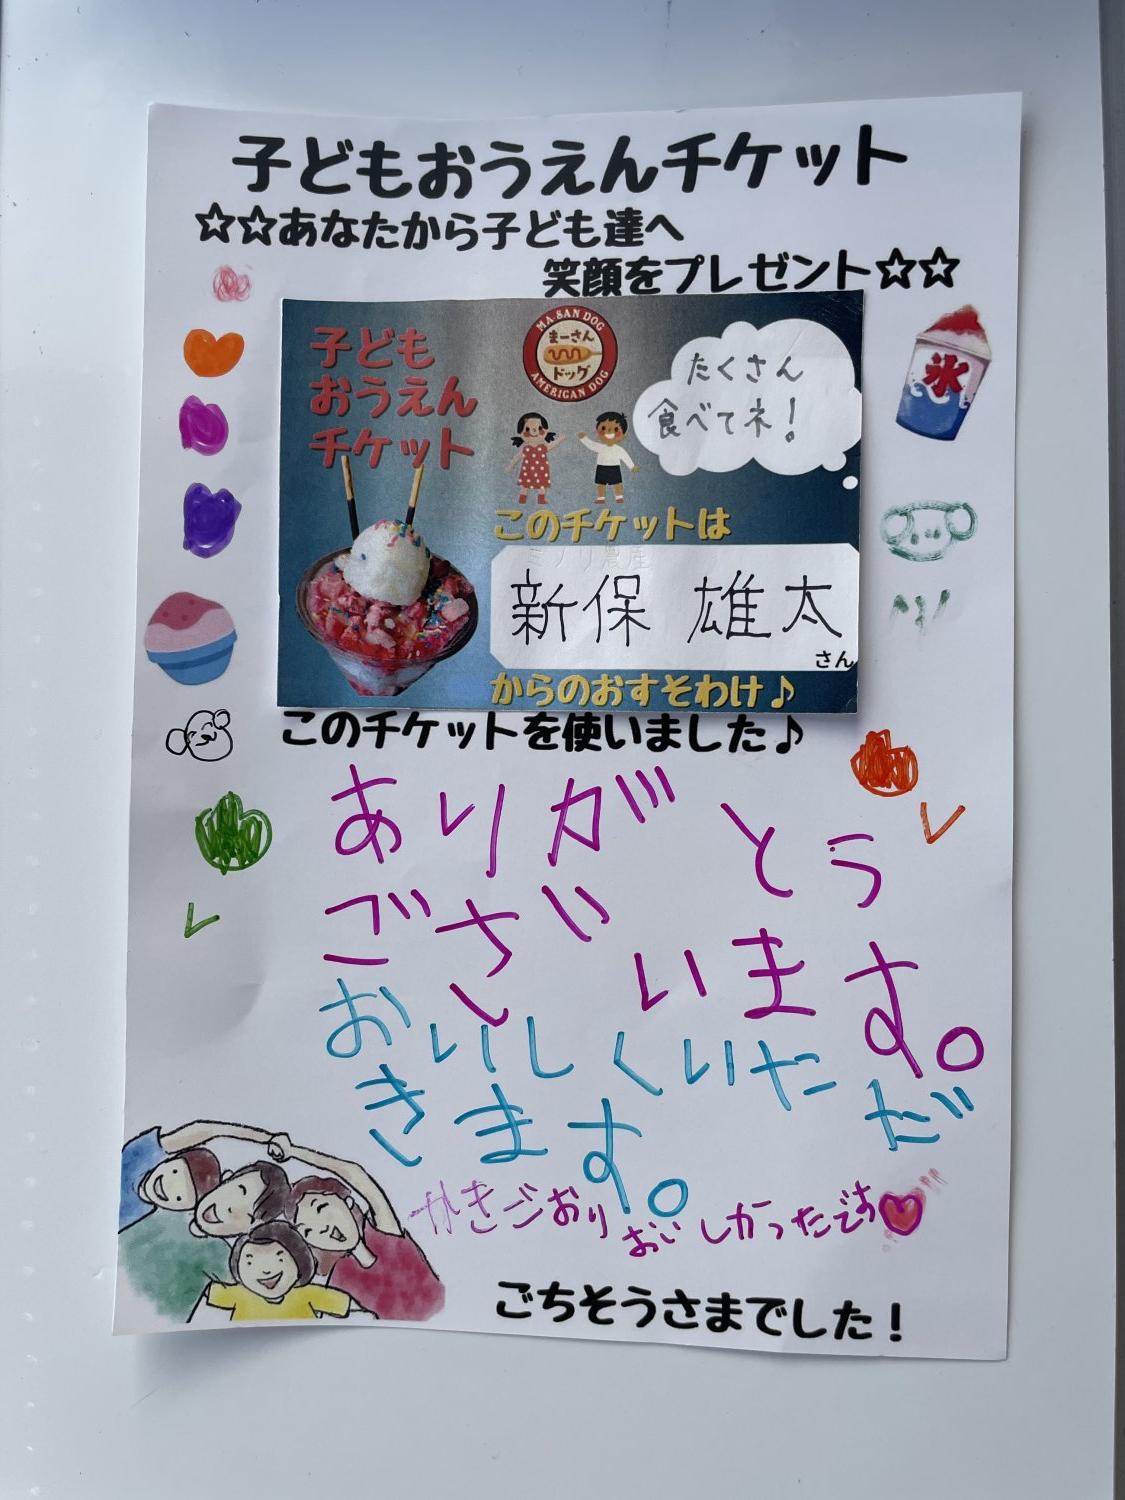 子どもおうえんチケット
☆☆あなたから子ども達へ
笑顔をプレゼント☆☆
子ども
おうえん
チケット
MA-SAN DOG
まーさん
ドッグ
AMERICAN DOG
たくさん
食べてネ！
氷
このチケットは
新保 雄太
さん
からのおすそわけ♪
このチケットを使いました♪
ありがとう
ございます。
おいしくいただ
きます。
かきごおり おいしかったです
ごちそうさまでした！